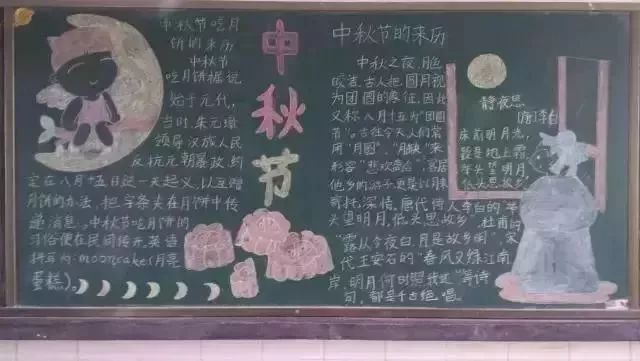 中秋节吃月
饼的来历
中秋节
吃月饼据说
始于元代,
当时,朱元璋
领导汉族人民
反抗元朝暴政,约
定在八月十五日这一天起义,以互赠
月饼的办法,把字条夹在月饼中传
递消息。中秋节吃月饼的
习俗便在民间传开,英语
拼写为:mooncake(月亮
蛋糕)。
中
秋
节
中秋节的来历
中秋之夜,月色
皎洁,古人把圆月视
为团圆的象征,因此
又称八月十五为“团圆
节”。古往今天人们常
用“月圆”、“月缺”来
形容“悲欢离合”,客居
他乡的游子更是以月来
寄托深情。唐代诗人李白的“举
头望明月,低头思故乡”,杜甫的
“露从今夜白,月是故乡明”,宋
代王安石的“春风又绿江南
岸,明月何时照我还”等诗
句,都是千古绝唱。
静夜思
[唐]李白
床前明月光,
疑是地上霜。
举头望明月,
低头思故乡。